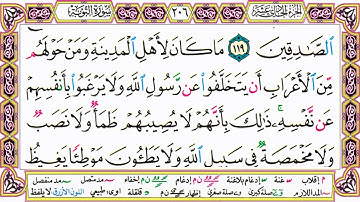 الجزء الحادي عشر ٢٠٦ سورة التوبة
ٱلصَّـٰدِقِينَ ١١٩ مَا كَانَ لِأَهْلِ ٱلْمَدِينَةِ وَمَنْ حَوْلَهُم
مِّنَ ٱلْأَعْرَابِ أَن يَتَخَلَّفُوا۟ عَن رَّسُولِ ٱللَّهِ وَلَا يَرْغَبُوا۟ بِأَنفُسِهِمْ
عَن نَّفْسِهِۦ ۚ ذَٰلِكَ بِأَنَّهُمْ لَا يُصِيبُهُمْ ظَمَأٌ وَلَا نَصَبٌ
وَلَا مَخْمَصَةٌ فِى سَبِيلِ ٱللَّهِ وَلَا يَطَـُٔونَ مَوْطِئًا يَغِيظُ